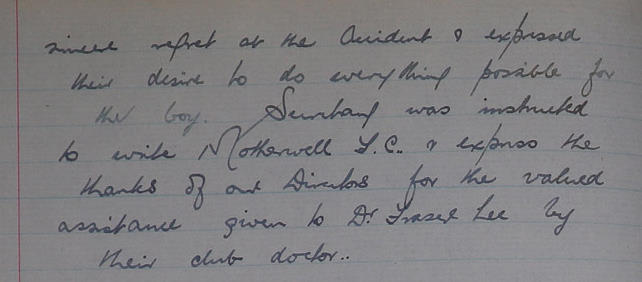 sincere regret at the Accident & expressed
their desire to do everything possible for
the boy. Secretary was instructed
to write Motherwell F.C. & express the
thanks of our Directors for the valued
assistance given to Dr Fraser Lee by
their club doctor..